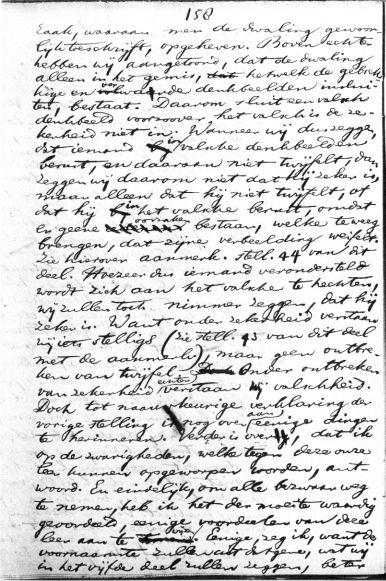 158
zaak, waaraan men de dwaling gewoon-
lijk toeschrijft, opgeheven. Boven echter
hebben wij aangetoond, dat de dwaling
alleen in het gemis, hetwelk de gebrek-
kige en verwarde denkbeelden inslui-
ten, bestaat. Daarom sluit een valsch
denkbeeld voorzoover het valsch is de ze-
kerheid niet in. Wanneer wij dus zeggen,
dat iemand in valsche denkbeelden
berust, en daaraan niet twijfelt, dan
zeggen wij daarom niet dat hij zeker is,
maar alleen dat hij niet twijfelt, of
dat hij in het valsche berust, omdat
er geene oorzaken bestaan, welke te weeg
brengen, dat zijne verbeelding weifelt.
Zie hierover aanmerk. stell. 44 van dit
deel. Hoezeer dus iemand verondersteld
wordt zich aan het valsche te hechten,
wij zullen toch nimmer zeggen, dat hij
zeker is. Want onder zekerheid verstaan
wij iets stelligs (zie stell. 43 van dit deel
met de aanmerk.), maar geen ontbre-
ken van twijfel. Onder ontbreken
van zekerheid echter verstaan wij valschheid.
Doch tot nauwkeurige verklaring der
vorige stelling is nog over aan eenige dingen
te herinneren. Verder is over, dat ik
op de zwarigheden, welke tegen deze onze
leer kunnen opgeworpen worden, ant-
woord. En eindelijk, om alle bezwaar weg
te nemen, heb ik het der moeite waardig
geoordeeld, eenige voordeelen van deze
leer aan te. Eenige, zeg ik, want de
voornaamste zullen uit datgene, wat wij
in het vijfde deel zullen zeggen, beter